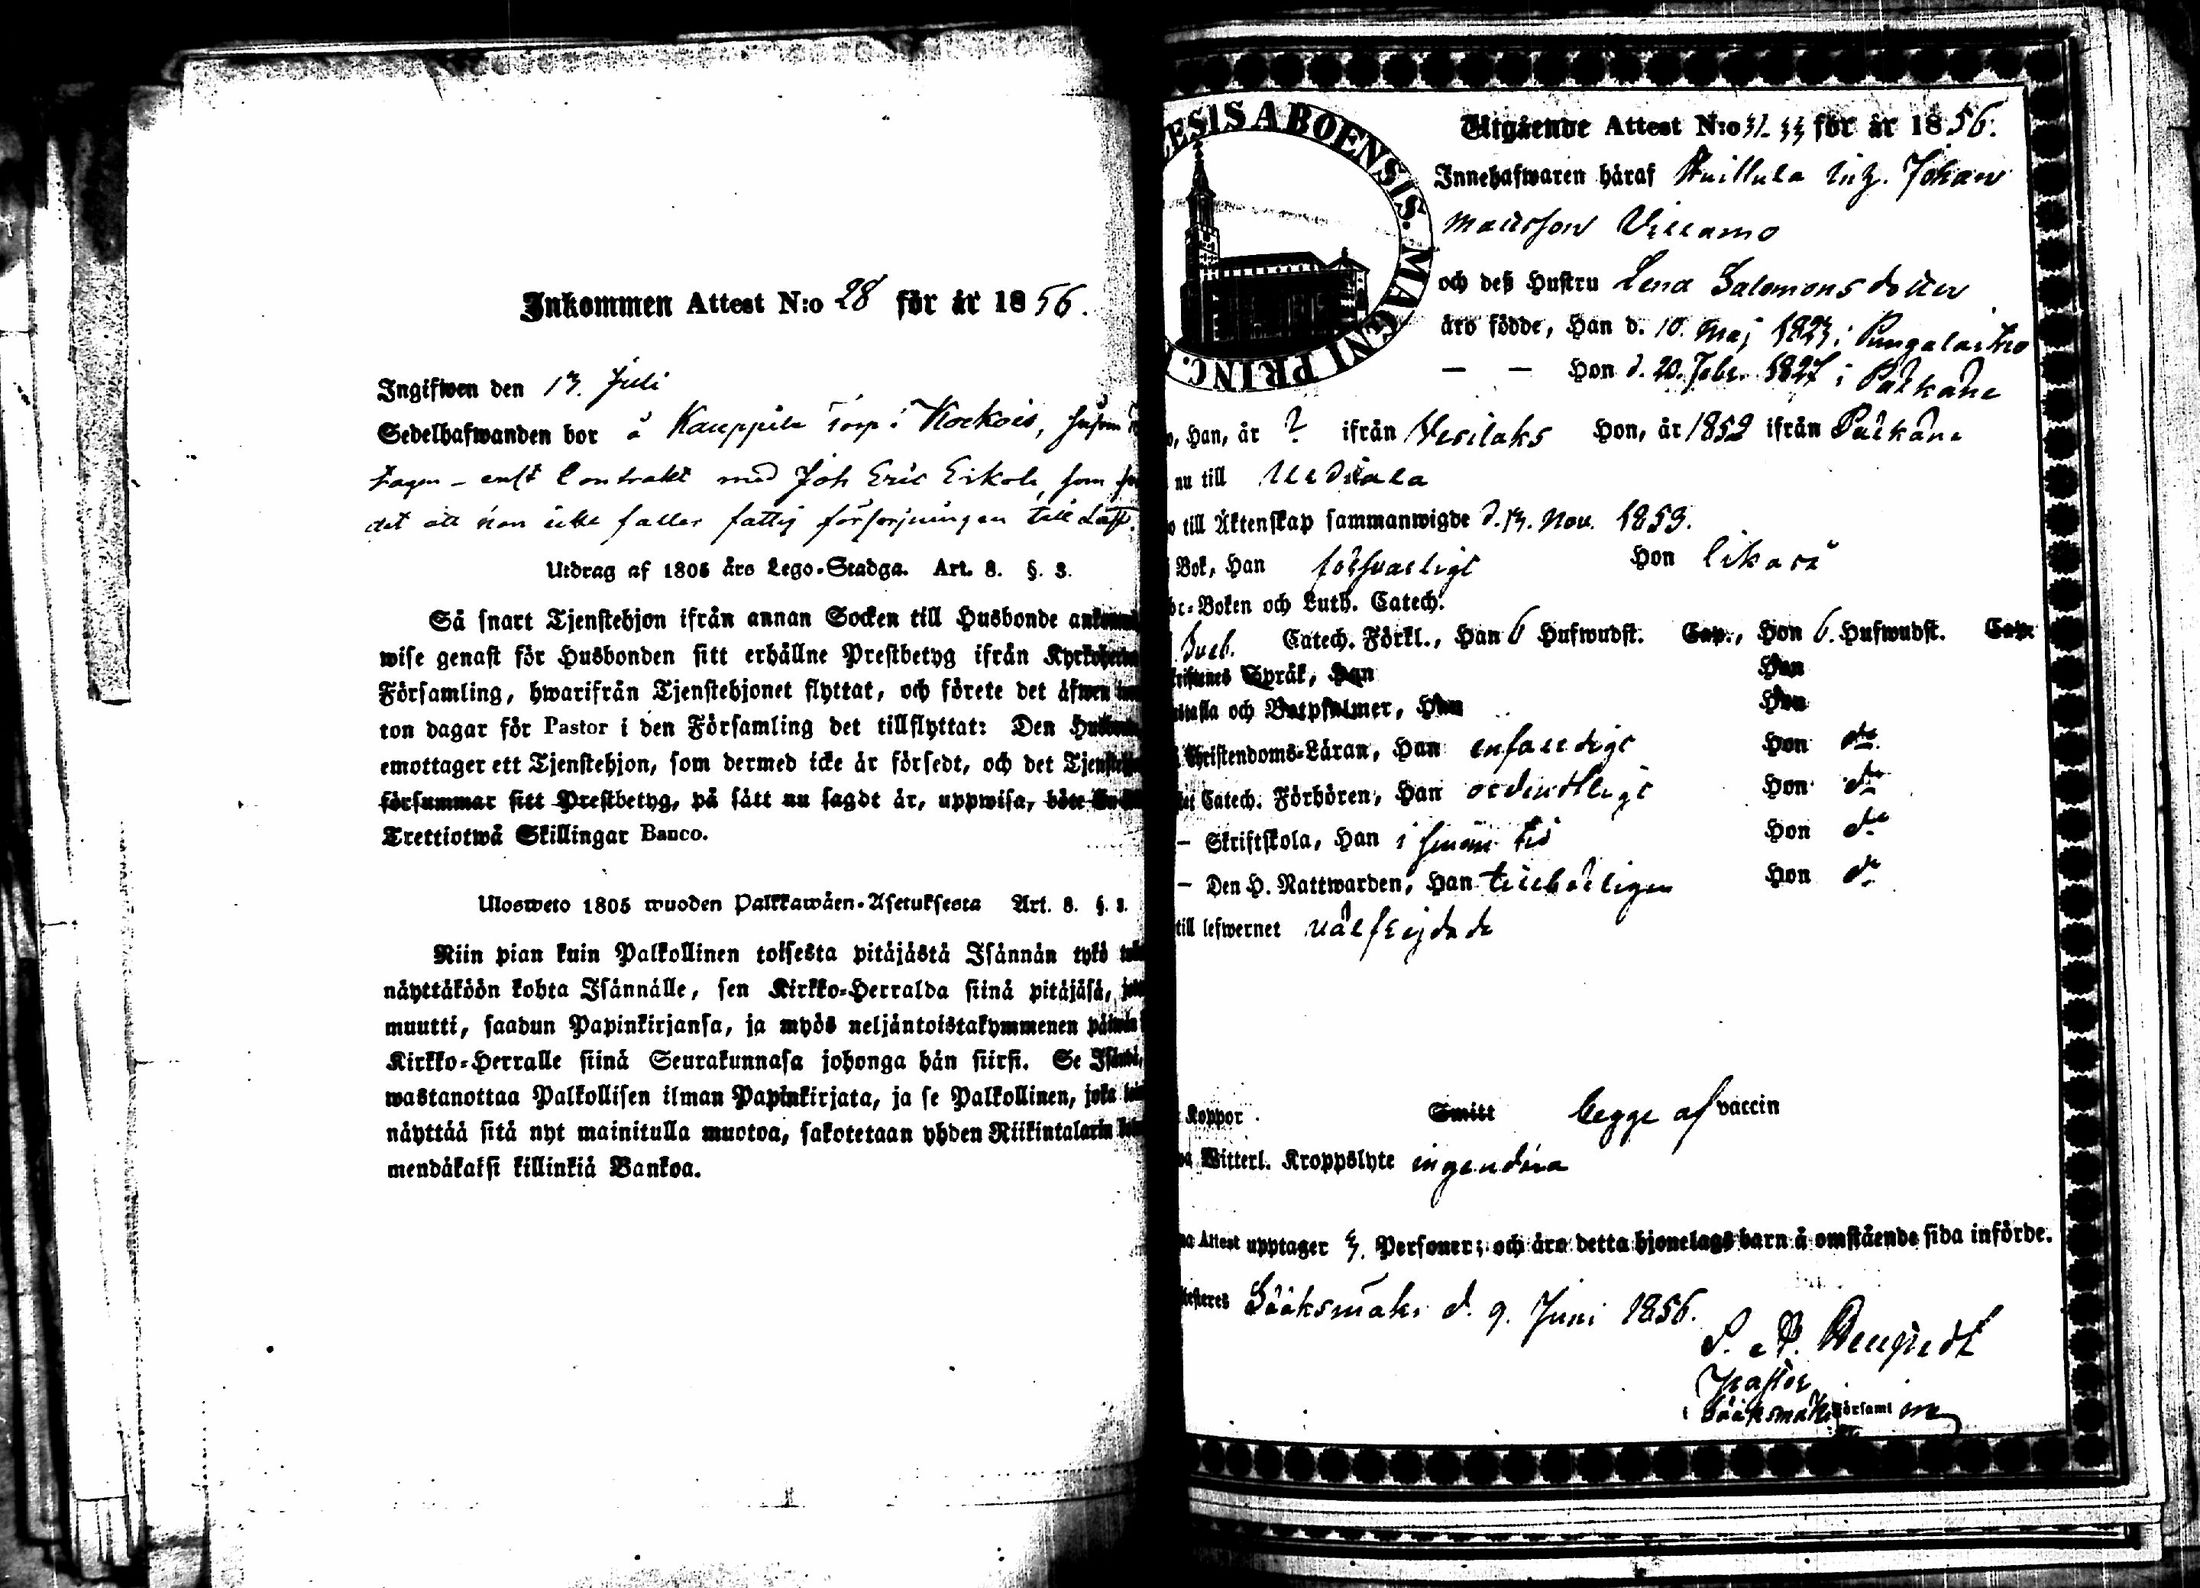 Inkommen Attest N:o 28 för år 1856.
Ingifwen den 13. Juli
Sedelhafwanden bor å Kauppila torp i
tagen enl:t Contrakt med Joh Eric Erkola, som
det att han icke faller fattig försörjningen till last.
Utdrag af 1805 års Lego-Stadga. Art. 8. §. 3.
Så snart Tjenstehjon ifrån annan Socken till Husbonde
wise genast för Husbonden sitt erhållne Prestbetyg ifrån
Församling, hwarifrån Tjenstehjonet flyttat, och förete det äfwen
ton dagar för Pastor i den Församling det tillflyttat: Den
emottager ett Tjenstehjon, som dermed icke är försedt, och det
försummar sitt Prestbetyg, på sätt nu sagdt är, uppwisa, böte
Trettiotwå Skillingar Banco.
Ulosweto 1805 wuoden Palkkawäen-Asetuksesta Art. 8. §. 3.
Niin pian kuin Palkollinen toisesta pitäjästä Isännän tykö
näyttäköön kohta Isännälle, sen Kirkko-Herralda siinä pitäjäsä,
muutti, saadun Papinkirjansa, ja myös neljäntoistakymmenen
Kirkko-Herralle siinä Seurakunnasa johonga hän siirsi. Se
wastanottaa Palkollisen ilman Papinkirjata, ja se Palkollinen, joka
näyttää sitä nyt mainitulla muotoa, sakotetaan yhden Riikintalarin
mendäkaksi killinkiä Bankoa.
ESIS ABOENSIS. MAGNI PRINC.
Utgående Attest N:o 31-33 för år 1856.
Innehafwaren häraf Johan
Mattsson
och deß Hustru Lena Salomonsdotter
äro födde, Han d. 10. Maj 1823 i Pungalaitio
— — Hon d. 20. Febr. 1827 i Pälkäne
Han, år ? ifrån Vesilaks Hon, år 1852 ifrån Pälkäne
nu till Uskiala
till Äktenskap sammanwigde d. 13. Nov. 1853.
Bok, Han försvarligt Hon likaså
-Boken och Luth. Catech.
Sveb. Catech. Förkl., Han 6 Hufwudst. Cap., Hon 6. Hufwudst. Cap.
Språk, Han Hon
och Botpsalmer, Han Hon
Christendoms-Läran, Han enfaldigt Hon d:o
Catech. Förhören, Han ordentligt Hon d:o
— Skriftskola, Han i sinom tid Hon d:o
— Den H. Nattwarden, Han tillbörligen Hon d:o
till lefwernet välfrejdade
Koppor Smitt begge af vaccin
Witterl. Kroppslyte ingendera
Attest upptager 3. Personer; och äro detta hjonelags barn å omstående sida införde.
Sääksmäki d. 9. Juni 1856.
Pastor
i Sääksmäki Församl